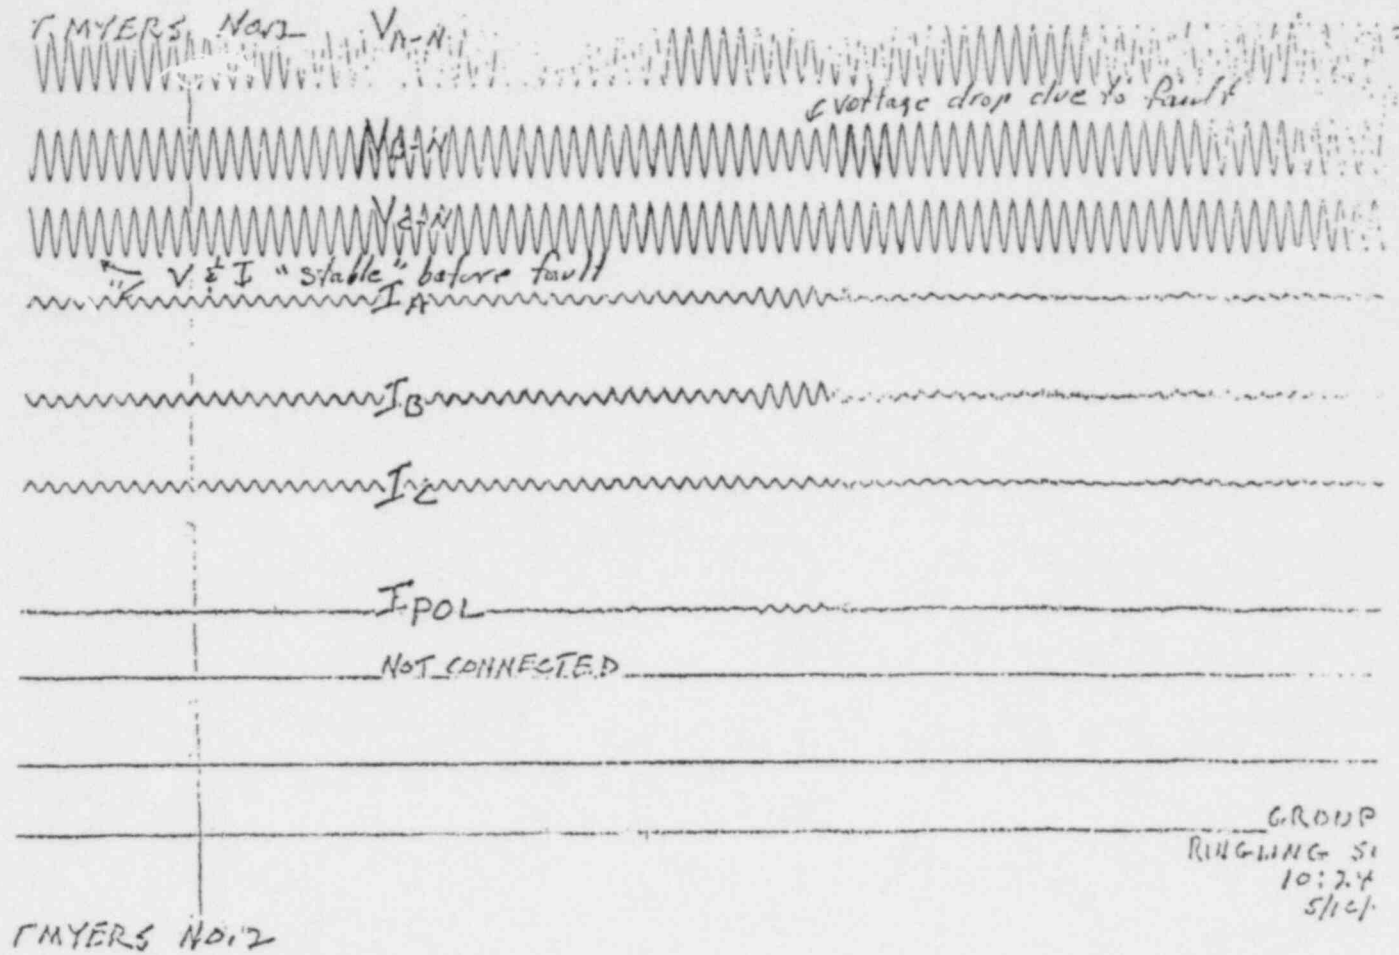 T. MYERS No.2 V A-N
voltage drop due to fault
V B-N
V C-N
V & I "stable" before fault
I A
I B
I C
I POL
NOT CONNECTED
GROUP
RINGLING
10:24
MYERS NO.2